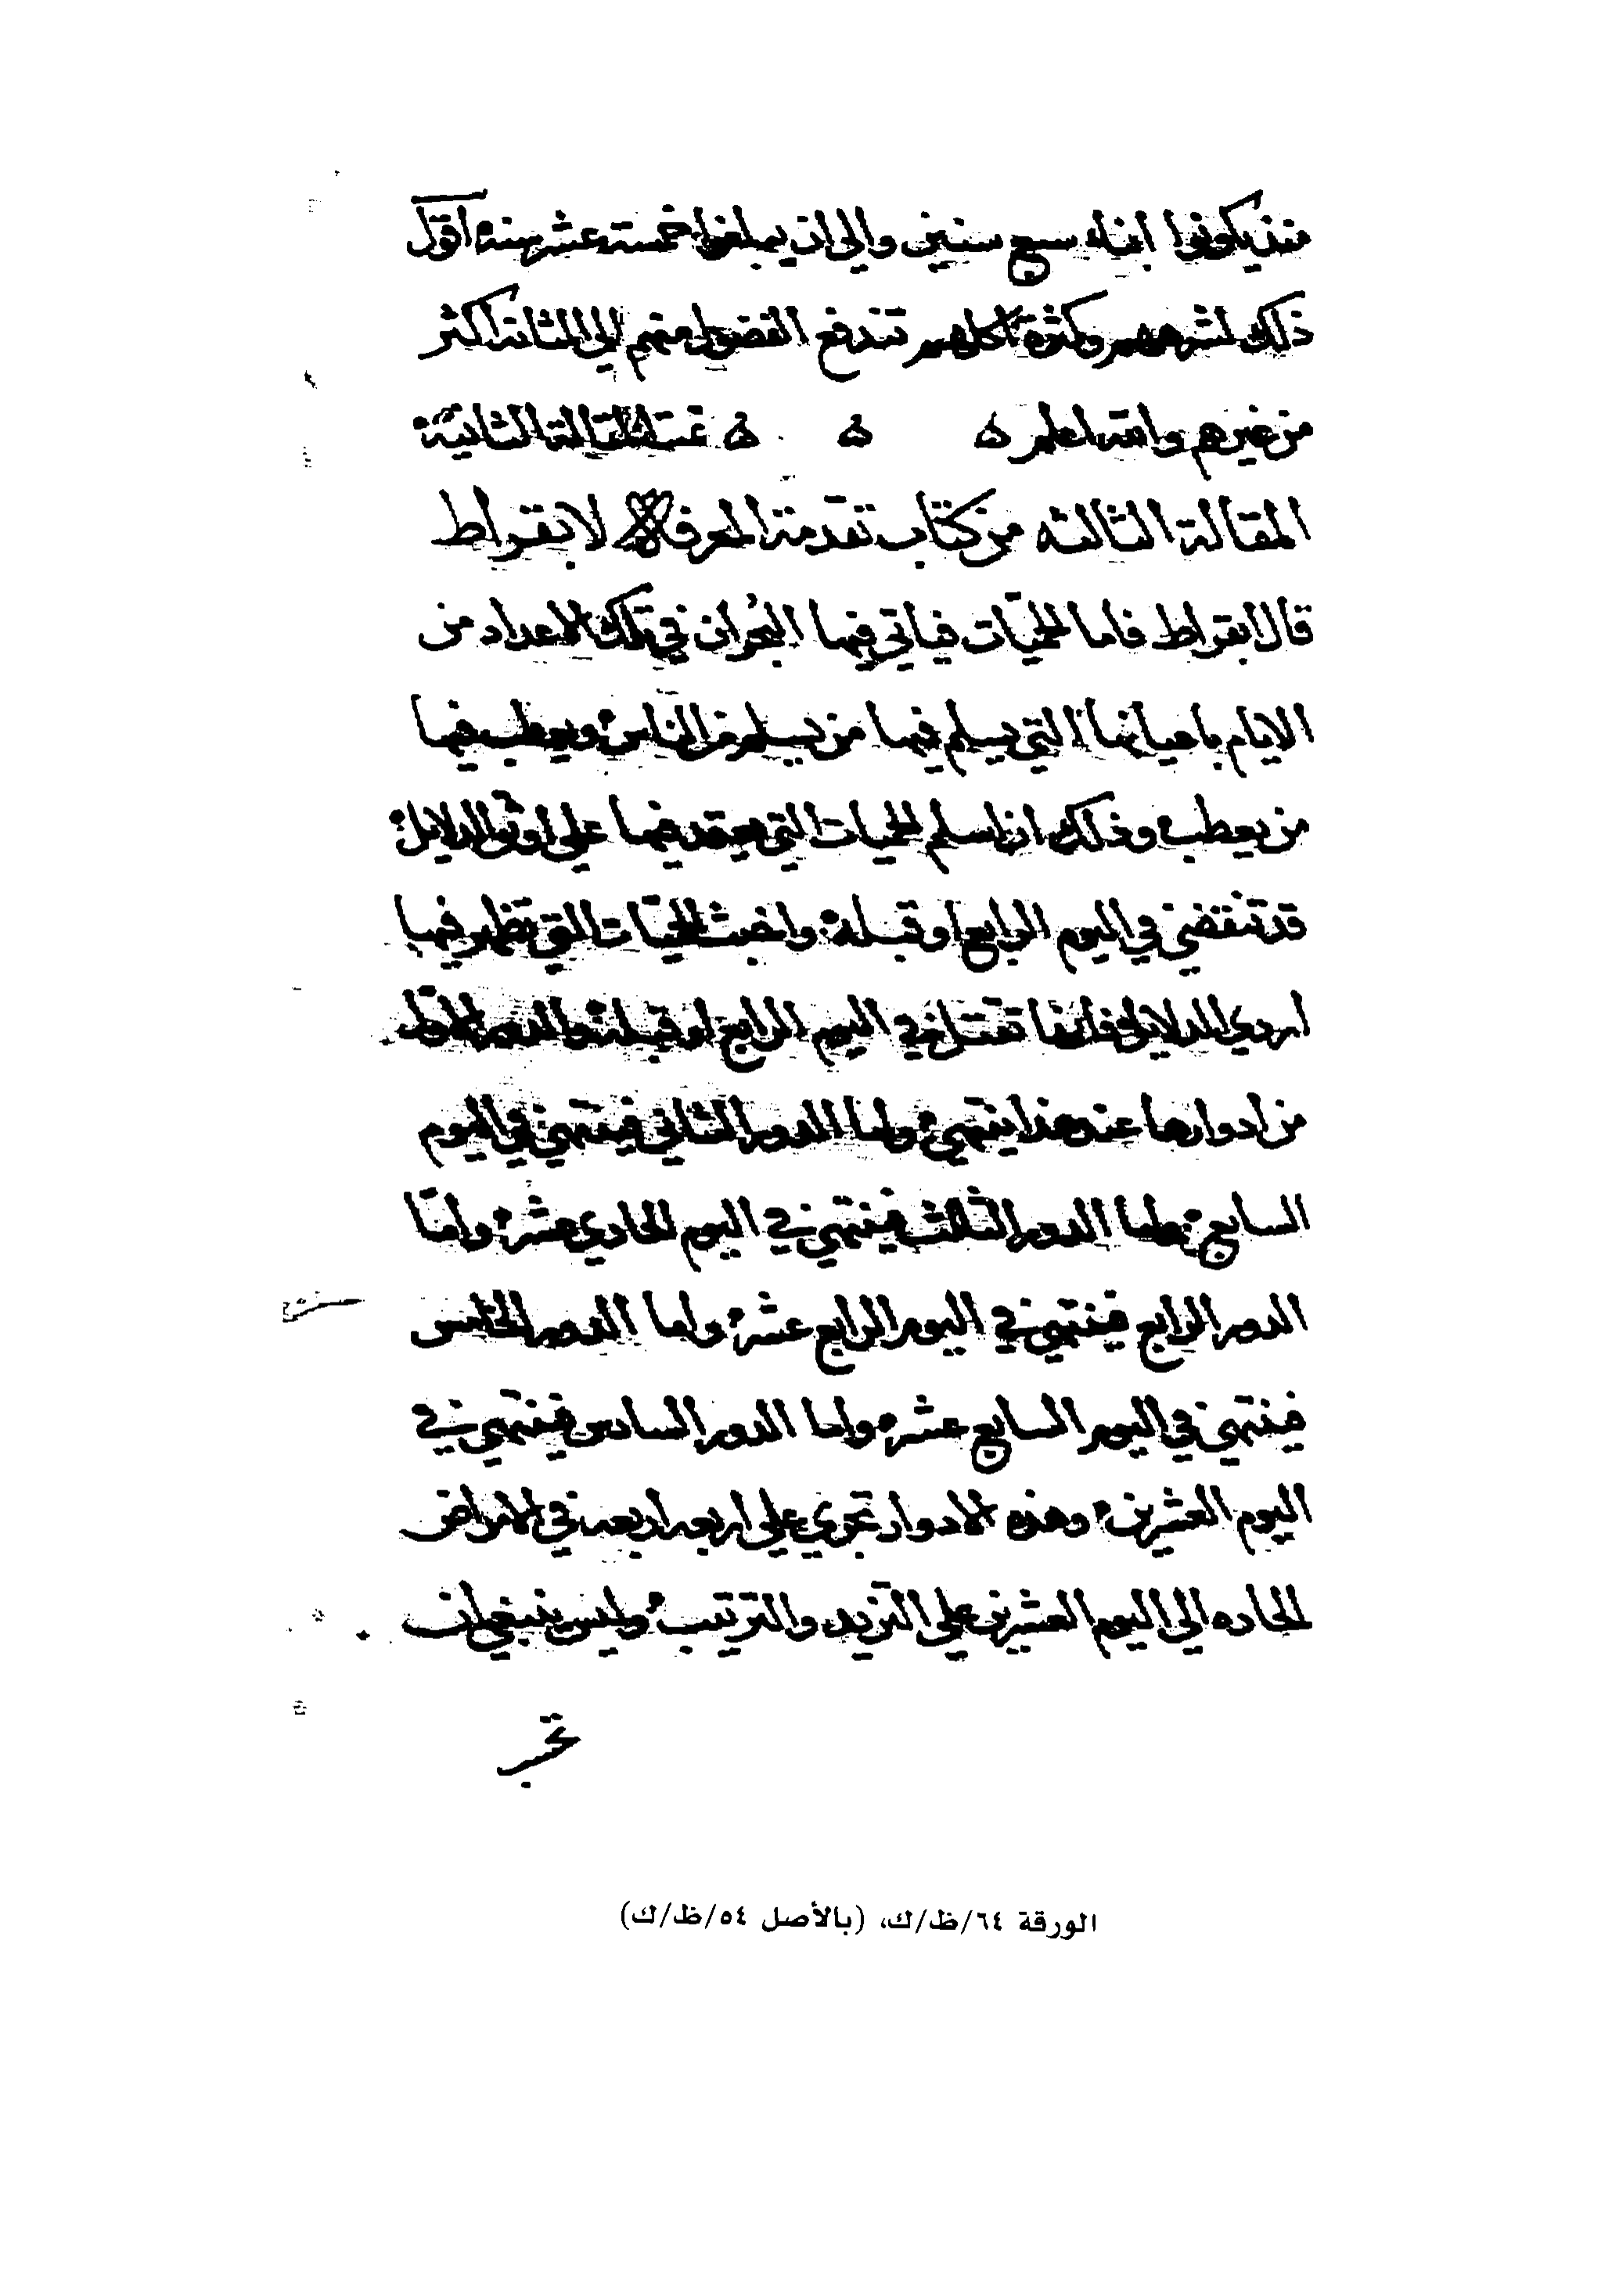 منذ يكونوا ابناء سبع سنين والى ان يبلغوا خمسة عشر سنه اقول
ذلك لشرههم وكثرة اكلهم تندفع الفضول منهم الى المثانة اكثر
من غيرهم والله اعلم ه ه ه تمت المقالة الثانية
المقالة الثالثه من كتاب تقدمة المعرفة لابقراط
قال ابقراط فاما الحميّات فياتي فيها البُحران في تلك الاعداد من
الايام باعيانها التي يسلم فيها من يسلم من الناس ويعطب فيها
من يعطب وذلك ان اسلم الحميات التي يعتمد فيها على اوثق الدلايل
قد تنقضي في اليوم الرابع او قبله واخبث الحميّات التي تظهر فيها
اردي الدلايل فانها تقتل في اليوم الرابع او قبله والدور الاول
من ادوارها عند هذا ينتهي واما الدور الثاني فينتهي في اليوم
السابع واما الدور الثالث فينتهي في اليوم الحادي عشر وامّا
الدور الرابع فينتهي في اليوم الرابع عشر واما الدور الخامس
فينتهي في اليوم السابع عشر واما الدور السادس فينتهي في
اليوم العشرين وهذه الادوار تجري على اربعه اربعه في الامراض
الحاده الى اليوم العشرين على التزيد والترتيب وليس ينبغي ان
الورقة ٦٤/ظ/ك، (بالأصل ٥٤/ظ/ك)